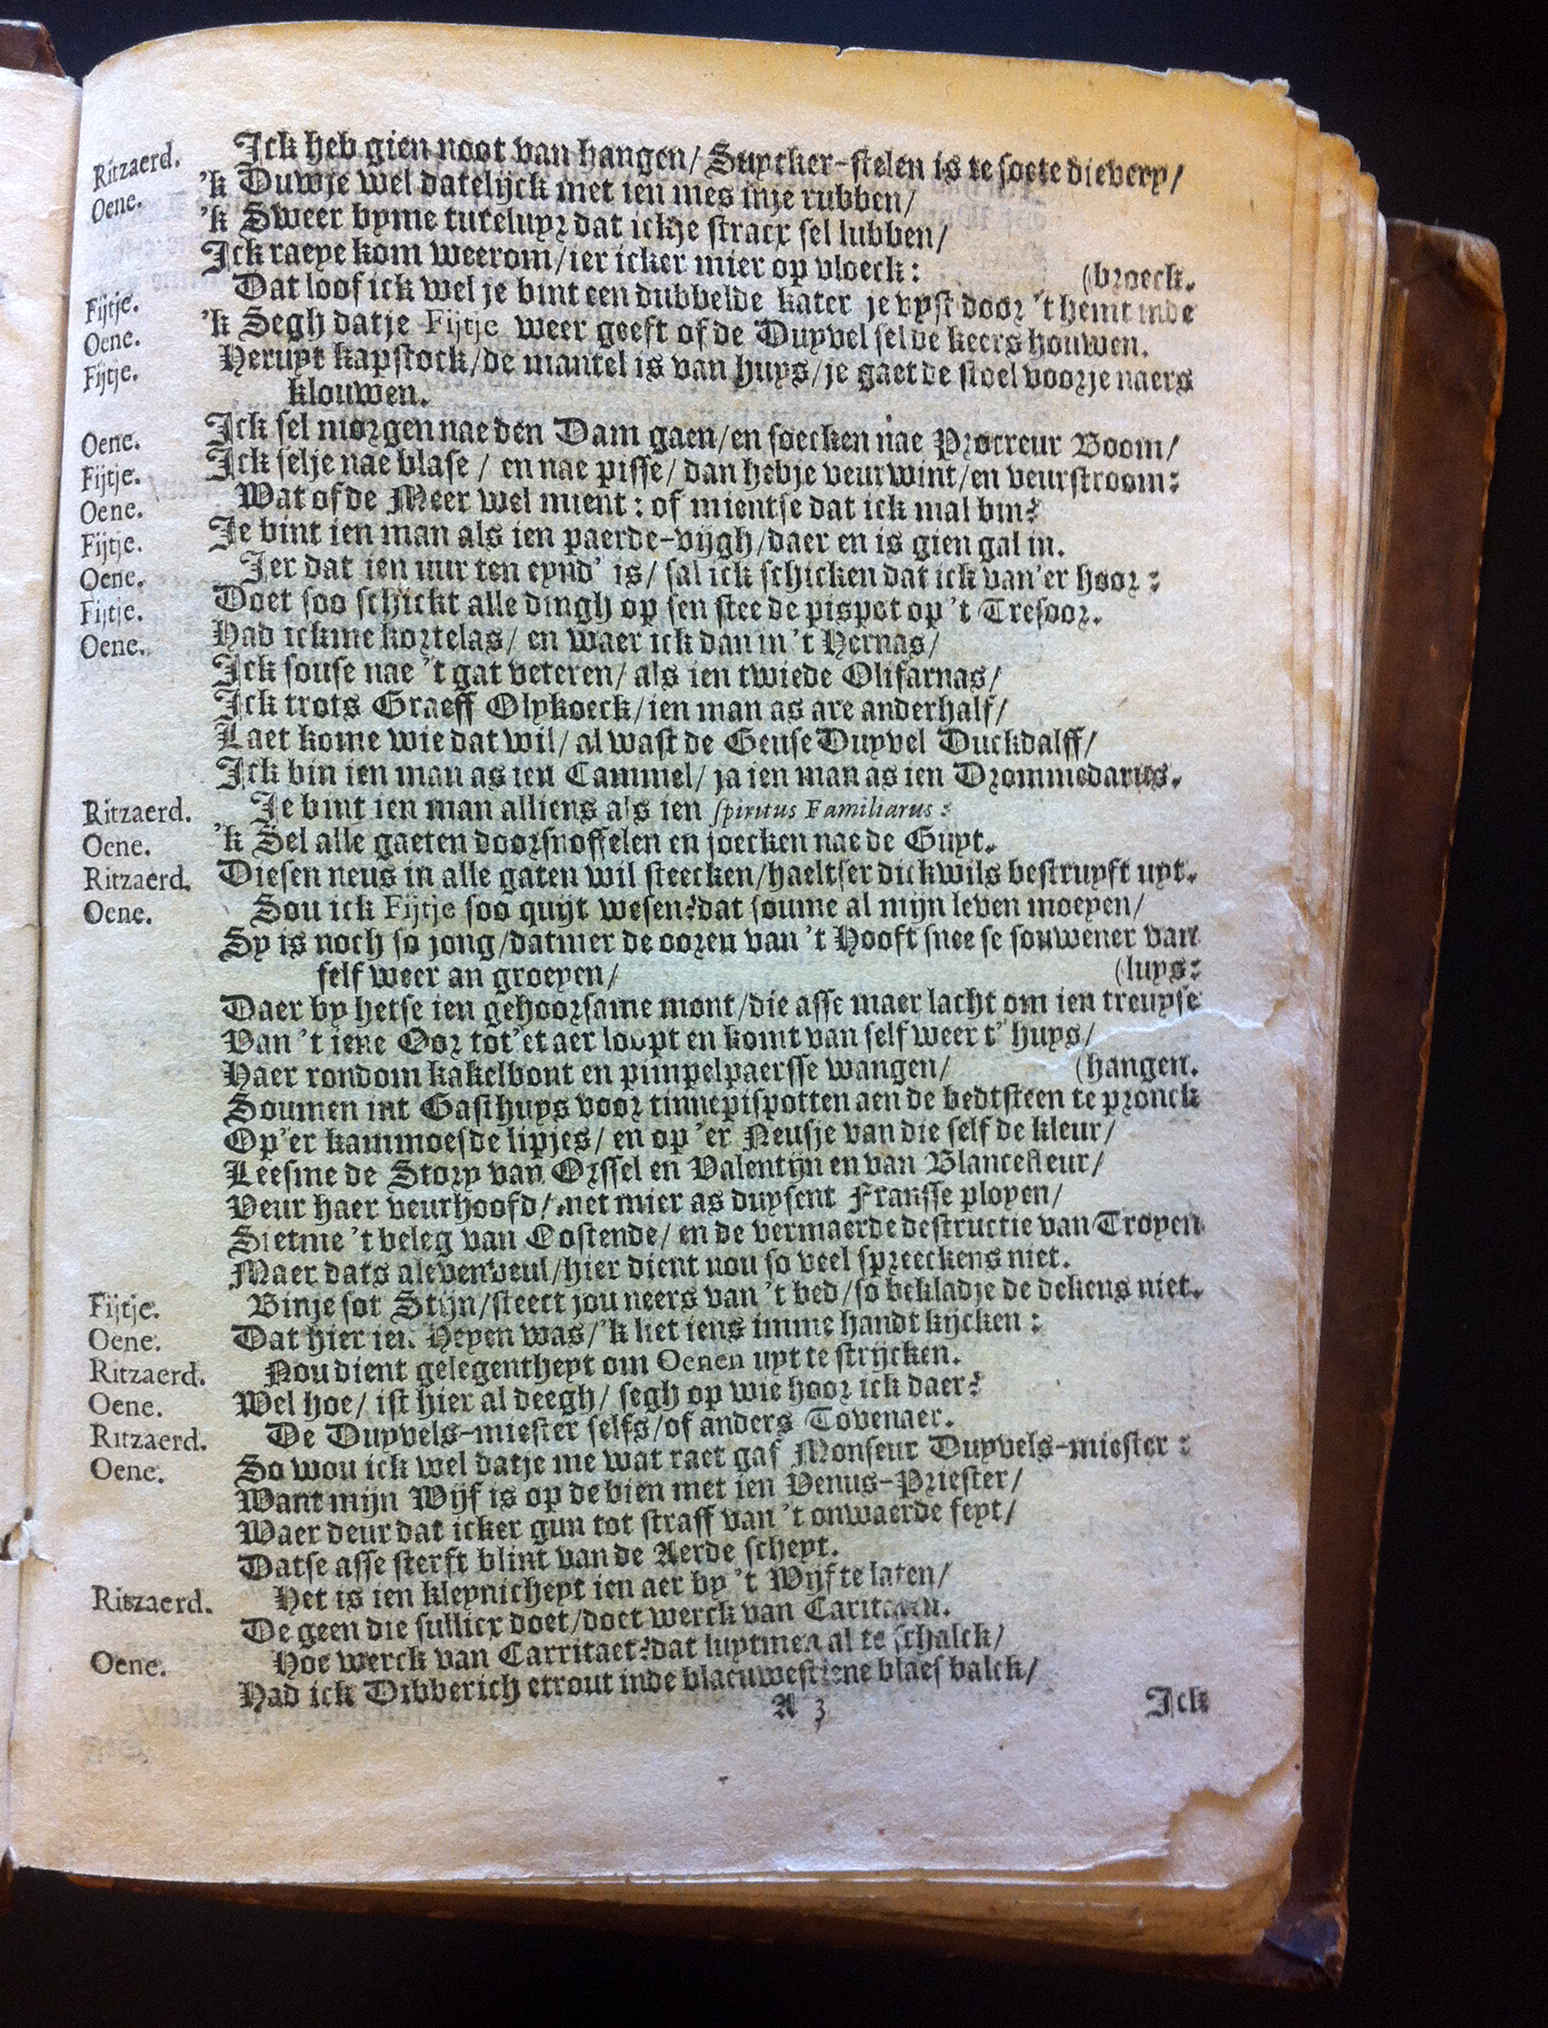 Ritzaerd. Ick heb gien noot van hangen/ Suycker-stelen is te soete dievery/
Oene. 'k Duwje wel datelijck met ien mes inje rubben/
'k Sweer byme tuteluyr dat ickje stracx sel lubben/
Ick raeye kom weerom/ier icker mier op vloeck: (broeck.
Fijtje. Dat loof ick wel je bint een dubbelde kater je vyst door 't hemt inde
Oene. 'k Segh datje Fijtje weer geeft of de Duyvel sel de keers houwen.
Fijtje. Heruyt kapstock/de mantel is van huys/je gaet de stoel voorje naers
klouwen.
Oene. Ick sel morgen nae den Dam gaen/en soecken nae Procreur Boom/
Fijtje. Ick selje nae blase / en nae pisse/ dan hebje veur wint/en veur stroom:
Oene. Wat of de Meer wel mient: of mientse dat ick mal bin?
Fijtje. Je bint ien man als ien paerde-vijgh/daer en is gien gal in.
Oene. Ier dat ien uur ten eynd' is/ sal ick schicken dat ick van'er hoor:
Fijtje. Doet soo schickt alle dingh op sen stee de pispot op 't Tresoor.
Oene. Had ick me kortelas/ en waer ick dan in 't Hernas/
Ick souse nae 't gat veteren/ als ien twiede Olifarnas/
Ick trots Graeff Olykoeck/ien man as are anderhalf/
Laet kome wie dat wil/ al wast de Geuse Duyvel Duckdalff/
Ick bin ien man as ien Cammel/ ja ien man as ien Drommedarus.
Ritzaerd. Je bint ien man alliens als ien spiritus Familiarus:
Oene. 'k Sel alle gaeten doorsnoffelen en soecken nae de Guyt.
Ritzaerd. Die sen neus in alle gaten wil steecken/haeltser dickwils bestruyft uyt.
Oene. Sou ick Fijtje soo quijt wesen? dat soume al mijn leven moeyen/
Sy is noch so jong/datmer de ooren van 't Hooft snee se souwener van
self weer an groeyen/ (luys:
Daer by hetse ien gehoorsame mont/die asse maer lacht om ien treuyse
Van 't iene Oor tot'et aer loopt en komt van self weer t' huys/
Haer rondom kakelbont en pimpelpaersse wangen/ (hangen.
Soumen int Gasthuys voor tinnepispotten aen de bedtsteen te pronck
Op'er kammoesde lipjes/ en op 'er Neusje van die self de kleur/
Leesme de Story van Orssel en Valentijn en van Blancefleur/
Veur haer veurhoofd/ met mier as duysent Fransse ployen/
Sietme 't beleg van Oostende/ en de vermaerde destructie van Troyen
Maer dats aleven veul/hier dient nou so veel spreeckens niet.
Fijtje. Binje sot Stijn/steect jou neers van 't bed/so bekladje de dekens niet.
Oene. Dat hier ien Heyen was/'k liet iens imme handt kijcken:
Ritzaerd. Nou dient gelegentheyt om Oenen uyt te strijcken.
Oene. Wel hoe/ ist hier al deegh/ segh op wie hoor ick daer?
Ritzaerd. De Duyvels-miester selfs/of anders Tovenaer.
Oene. So wou ick wel datje me wat raet gaf Monseur Duyvels-miester:
Want mijn Wijf is op de bien met ien Venus-Priester/
Waer deur dat icker gun tot straff van 't onwaerde feyt/
Datse asse sterft blint van de Aerde scheyt.
Ritzaerd. Het is ien kleynicheyt ien aer by 't Wijf te laten/
De geen die sullicx doet/doet werck van
Oene. Hoe werck van Carritaet? dat luytmen al te schalck/
Had ick Dibberich etrout inde blaeuwe blaes balck/
A 3 Ick